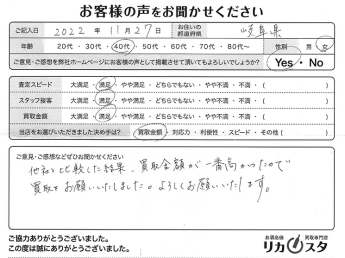 お客様の声をお聞かせください
ご記入日 2022年11月27日 お住いの都道府県 岐阜県
年齢 20代・30代・40代・50代・60代・70代・80代〜 性別 男・女
ご意見・ご感想を弊社ホームページにお客様の声として掲載させて頂いてもよろしいでしょうか? Yes・No
査定スピード 大満足・満足・やや満足・どちらでもない・やや不満・不満・( )
スタッフ接客 大満足・満足・やや満足・どちらでもない・やや不満・不満・( )
買取金額 大満足・満足・やや満足・どちらでもない・やや不満・不満・( )
当店をお選びいただきました決め手は? 買取金額・対応力・利便性・スピード・その他( )
ご意見・ご感想などぜひお聞かせください
他社と比較した結果、買取金額が一番高かったので
買取をお願いいたしました。よろしくお願いいたします。
ご協力ありがとうございました。
この度は誠にありがとうございました。
お酒名酒 買取専門店
リカスタ